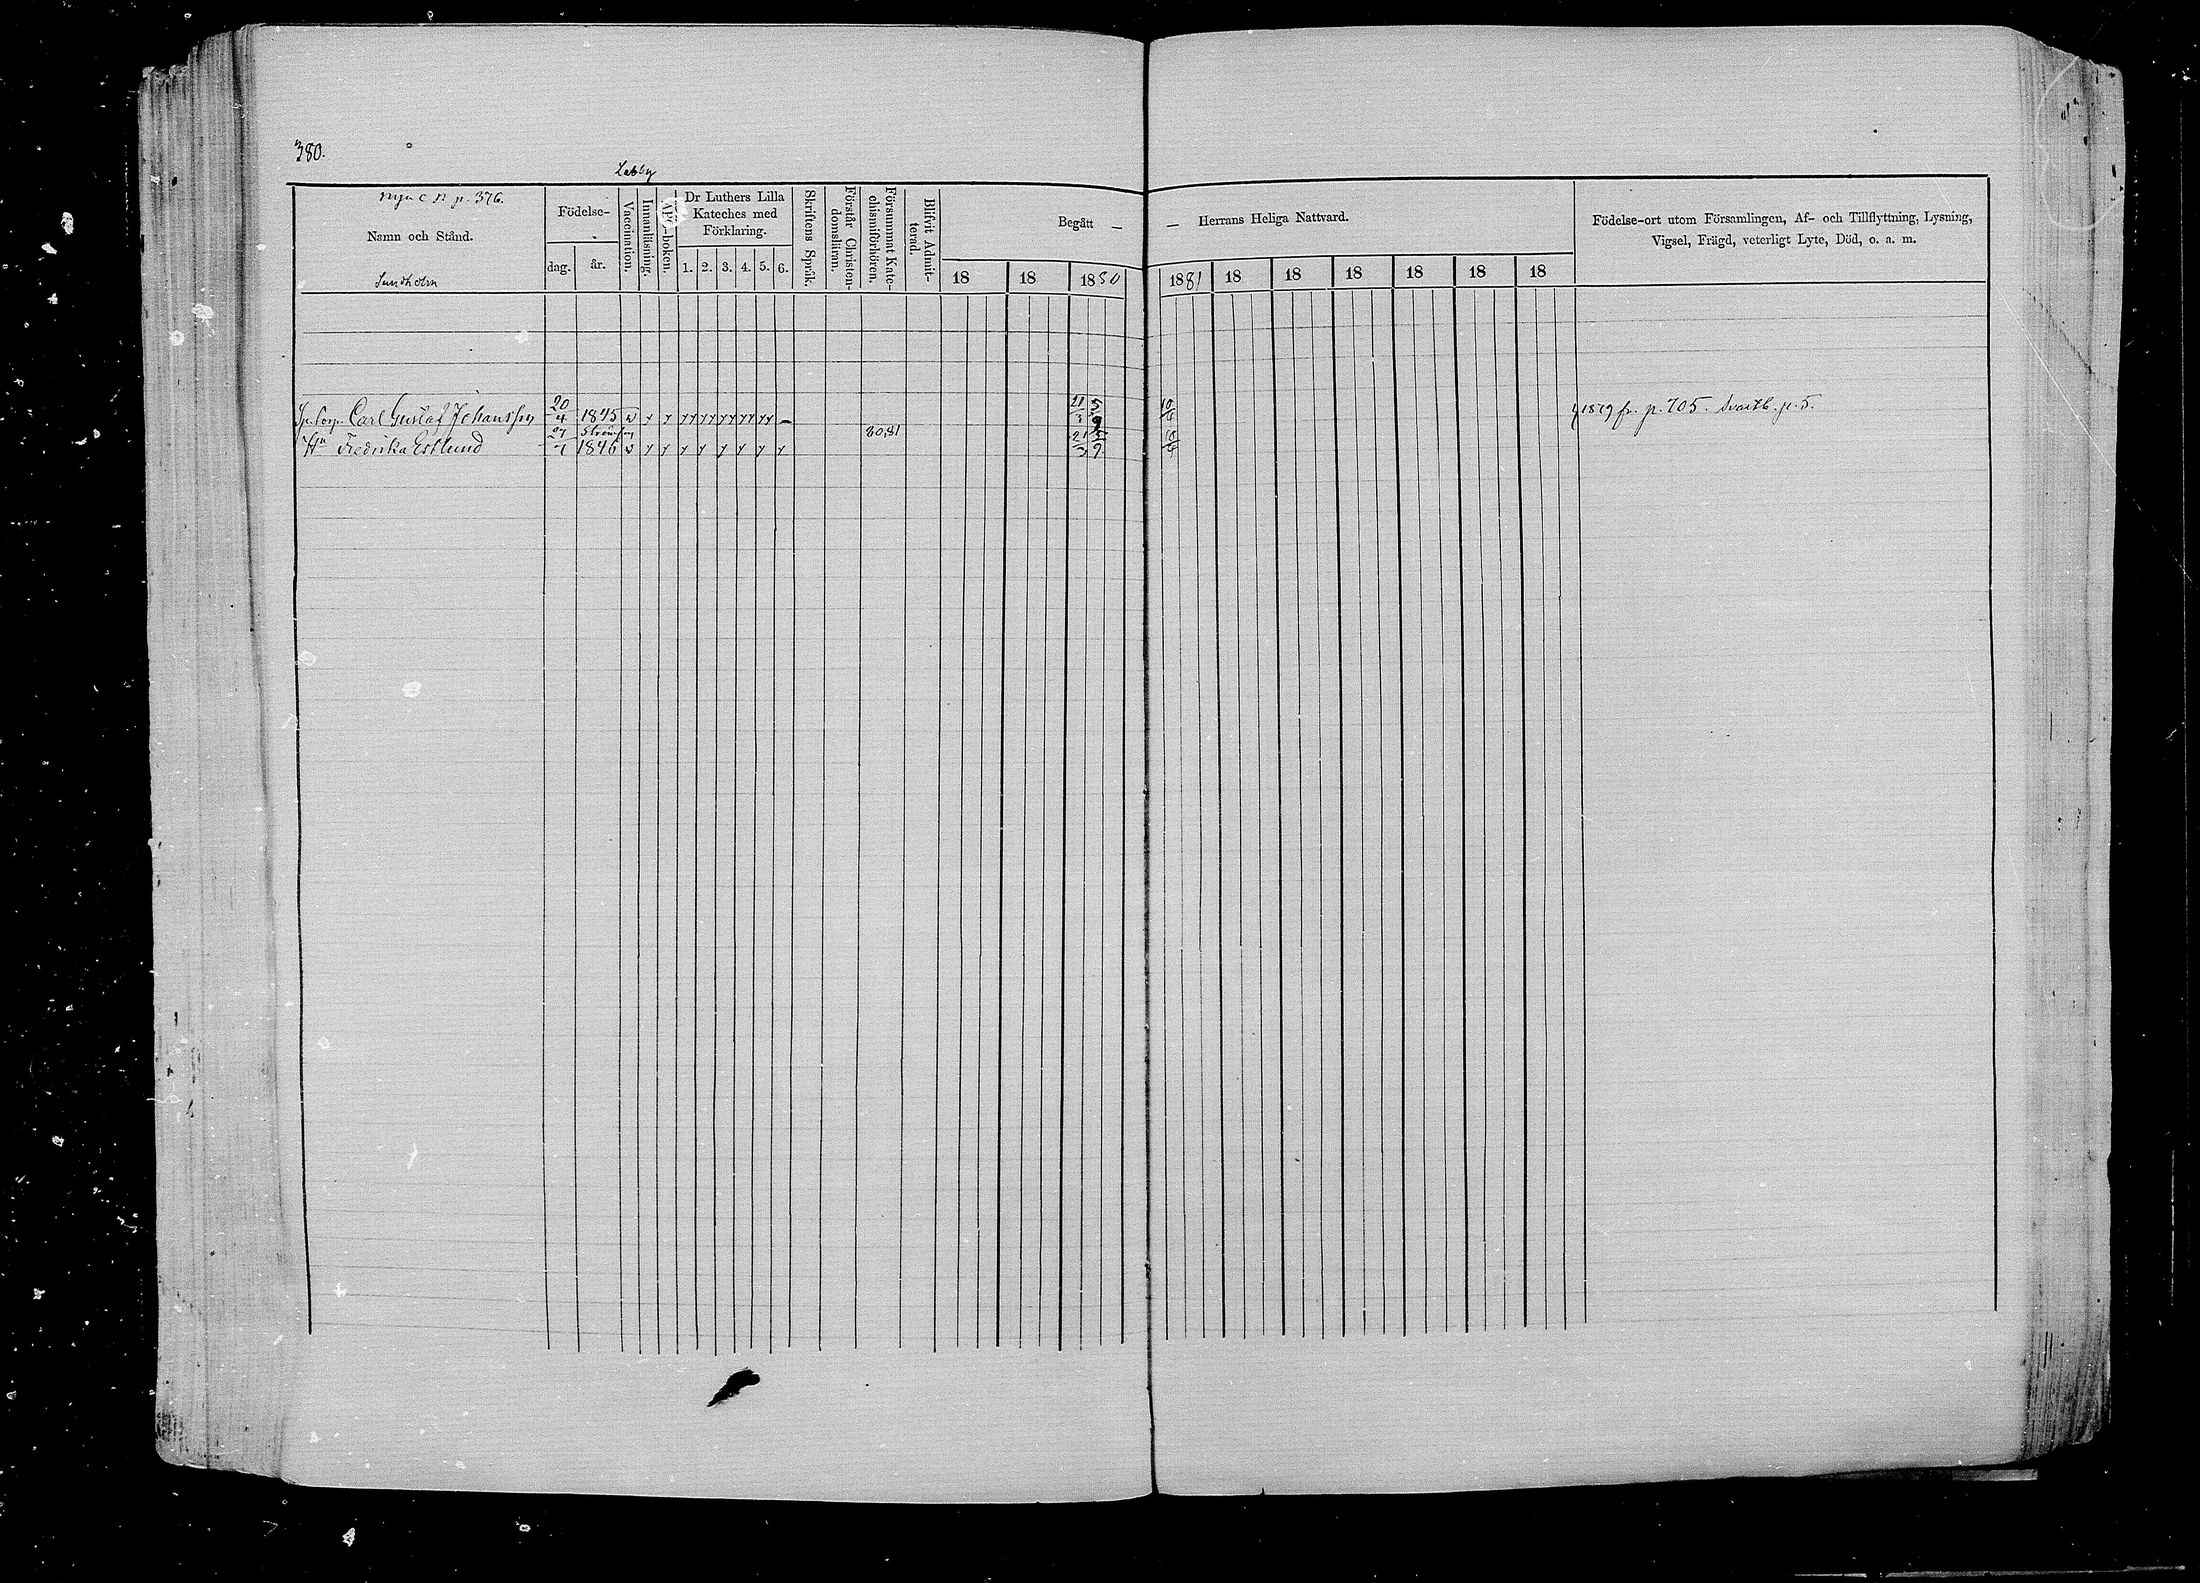 380.
Labby
nya C. B. p. 376.
Namn och Stånd.
Sundholm
Födelse-
dag.
år.
Vaccination.
Innanläsning.
boken.
Dr Luthers Lilla
Kateches med
Förklaring.
1. 2. 3. 4. 5. 6.
Skriftens Språk.
Förstår Christen-
domsläran.
Försummat Kate-
chismiförhören.
Blifvit Admit-
terad.
Begått —
— Herrans Heliga Nattvard.
18 18 1880 1881 18 18 18 18 18 18
Födelse-ort utom Församlingen, Af- och Tillflyttning, Lysning,
Vigsel, Frägd, veterligt Lyte, Död, o. a. m.
Carl Gustaf Johansson 20/4 1845 1879 fr. p. 705. Svartb. p. 5.
Hu Fredrika Estlund 27/7 1846 80,81